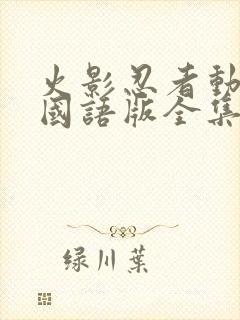 火影忍者動
國語版全集
绿川葉